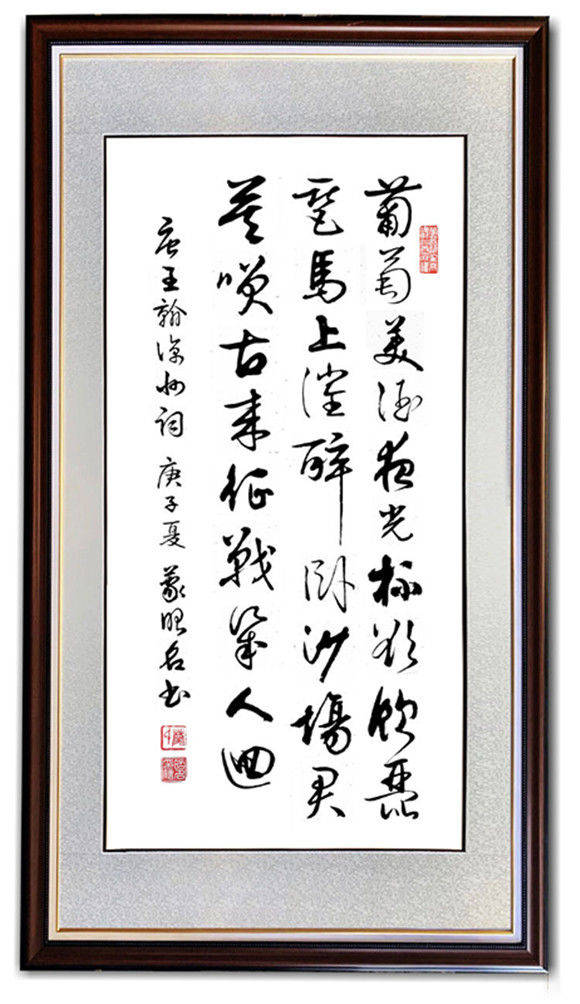 葡萄美酒夜光杯欲飲琵
琶馬上催醉卧沙場君
莫咲古来征戰幾人迴
唐王翰凉州詞 庚子夏 蒙名书